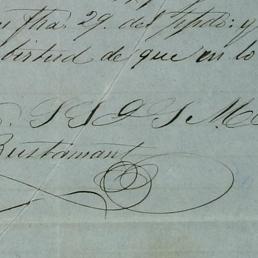 fha. 29. del ppdo: y
virtud de que en lo
S S G S M
Bustamant